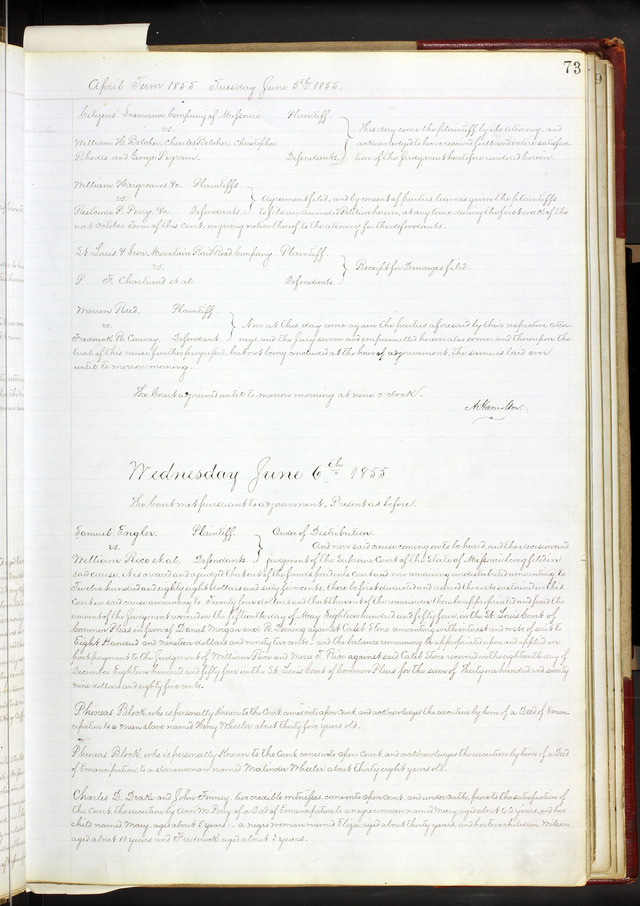 73
April Term 1855 Tuesday June 5th 1855.
Citizens' Insurance Company of Missouri Plaintiff
vs.
William H. Belcher, Charles Belcher, Christopher
Rhodes and George Pegram. Defendants.
This day come the plaintiff by its attorney, and
acknowledges to have received full and entire satisfac-
tion of the judgment heretofore rendered herein.
William Hargreaves &c. Plaintiffs
vs.
Rosicane P. Perry, &c. Defendants.
Agreement filed, and by consent of parties leave is given the plaintiffs
to file an Amended Petition herein, at any time during the first week of the
next October Term of this Court, on giving notice thereof to the attorney for the defendants.
St. Louis & Iron Mountain Rail Road Company. Plaintiff.
vs.
P. F. Chartrand et al. Defendants.
Receipt for Damages filed.
Warren Reed. Plaintiff.
vs.
Frederick R. Conway. Defendant.
Now at this day come again the parties aforesaid by their respective attor-
neys, and the jury sworn and empannelled herein also come, and thereupon the
trial of this cause further progressed, but not being concluded at the hour of adjournment, the same is laid over
until to morrow morning.
The Court adjourned until to morrow morning at nine o'clock.
A. Hamilton
Wednesday June 6th 1855
The Court met pursuant to adjournment, Present as before.
Samuel Engler. Plaintiff.
vs.
William Rice et al. Defendants.
Order of Distribution.
And now said cause coming on to be heard, and the decision and
judgment of the Supreme Court of the State of Missouri being filed in
said cause, it is ordered and adjudged that out of the funds paid into Court and now remaining undistributed amounting to
Twelve hundred and eighty eight dollars and sixty five cents, there be first deducted and used the costs sustained in this
Court on said cause amounting to Twenty four dollars and that out of the remainder there be appropriated and paid the
amount of the judgment recovered on the fifteenth day of May Eighteen hundred and fifty four, in the St. Louis Court of
Common Pleas in favor of Daniel Morgan and R. Corning against Caleb Stone amounting with interest and costs of suit to
Eight Hundred and nineteen dollars and ninety two cents, and the balance remaining be appropriated upon and applied in
part payment to the judgment of William Rice and Moses F. Rice against said Caleb Stone recovered on the eighteenth day of
December Eighteen hundred and fifty four in the St. Louis Court of Common Pleas for the sum of Thirty nine hundred and seventy
nine dollars and eighty five cents.
Phineas Block, who is personally known to the Court, comes into open Court, and acknowledges the execution by him of a Deed of Eman-
cipation to a man slave named Henry Wheeler about thirty five years old.
Phineas Block, who is personally known to the Court, comes into open Court and acknowledges the execution by him of a Deed
of Emancipation to a slave woman named Malinda Wheeler about thirty eight years old.
Charles D. Drake and John Finney, two credible witnesses, come into open Court, and under oath, prove to the satisfaction of
the Court, the execution by Ann M. Perry of a Deed of Emancipation to a negro woman named Mary aged about 23 years, and her
child named Mary, aged about 5 years; - a negro woman named Eliza, aged about thirty years, and her two children Wilson
aged about 10 years and Frederick, aged about 3 years.